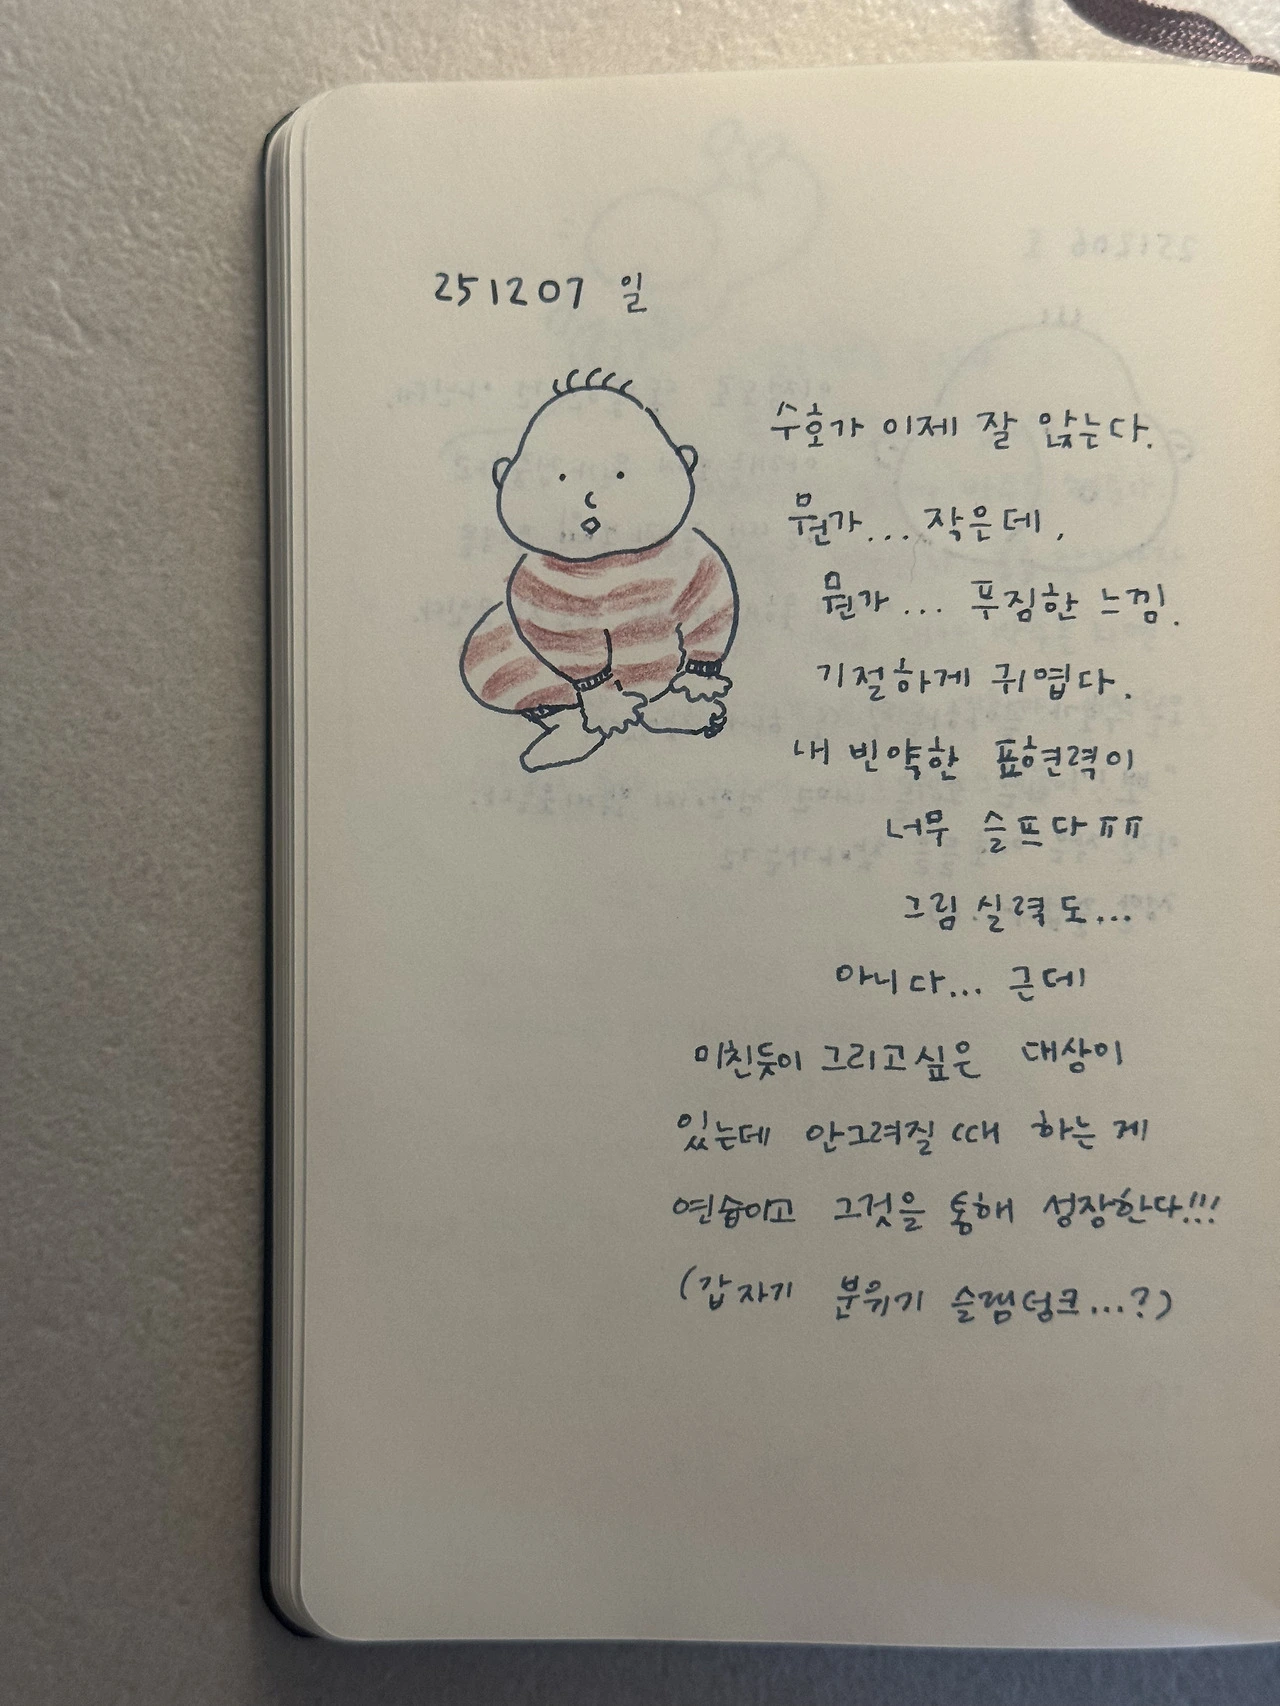 251207 일
수호가 이제 잘 앉는다.
뭔가... 작은데,
뭔가... 푸짐한 느낌.
기절하게 귀엽다.
내 빈약한 표현력이
너무 슬프다 ㅠㅠ
그림 실력도...
아니다... 근데
미친듯이 그리고싶은 대상이
있는데 안그려질 때 하는 게
연습이고 그것을 통해 성장한다!!!
(갑자기 분위기 슬램덩크...?)